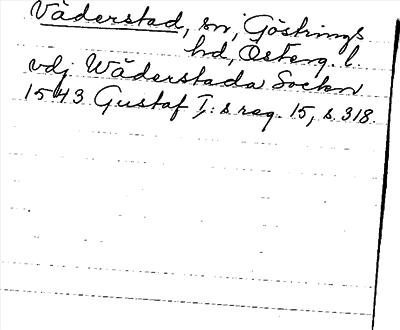 Väderstad, sn, Göstrings
hd, Österg. l.
vdj Wäderstada Sockn
1543 Gustaf I:s reg. 15, s. 318.